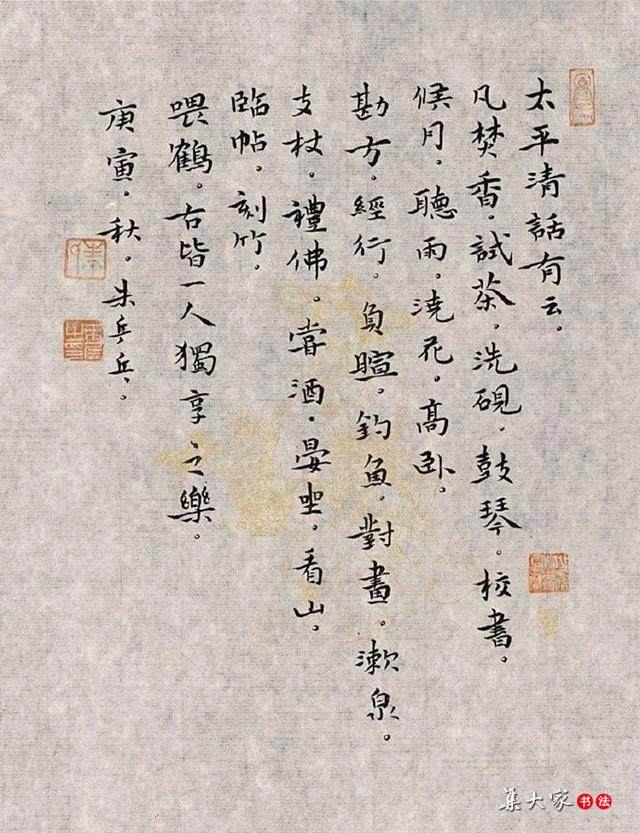 太平清話有云。
凡焚香。試茶。洗硯。鼓琴。校書。
候月。聽雨。澆花。高卧。
勘方。經行。負暄。釣魚。對畫。漱泉。
支杖。禮佛。嘗酒。晏坐。看山。
臨帖。刻竹。
喂鶴。右皆一人獨享之樂。
庚寅。秋。朱乒乓。
集大家书法